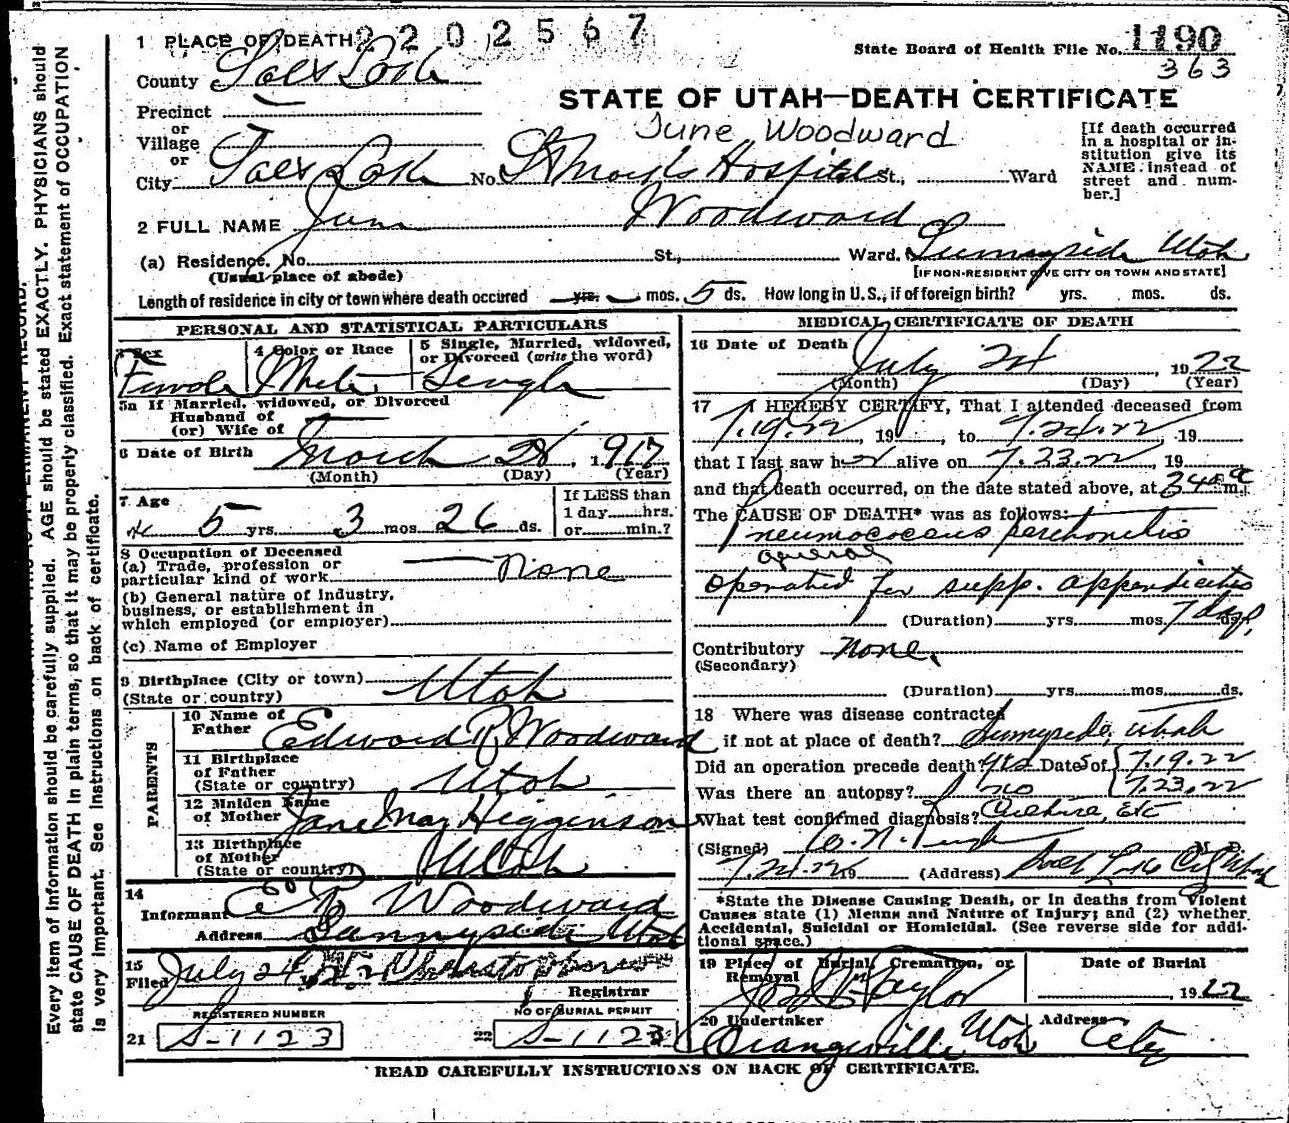 1 PLACE OF DEATH 2202567
State Board of Health File No. 1190
County Salt Lake
363
Precinct
STATE OF UTAH—DEATH CERTIFICATE
or
Village
June Woodward
or
City Salt Lake No. St Mark's Hospital St., Ward
[If death occurred
in a hospital or in-
stitution give its
NAME instead of
street and num-
ber.]
2 FULL NAME June Woodward
(a) Residence. No. St., Ward. Sunnyside Utah
(Usual place of abode)
[IF NON-RESIDENT GIVE CITY OR TOWN AND STATE]
Length of residence in city or town where death occured yrs. mos. 5 ds. How long in U.S., if of foreign birth? yrs. mos. ds.
PERSONAL AND STATISTICAL PARTICULARS
Sex
4 Color or Race
5 Single, Married, widowed,
or Divorced (write the word)
Female White Single
5a If Married, widowed, or Divorced
Husband of
(or) Wife of
6 Date of Birth March 28, 1917
(Month) (Day) (Year)
7 Age
5 yrs. 3 mos. 26 ds.
If LESS than
1 day hrs.
or min.?
8 Occupation of Deceased
(a) Trade, profession or
particular kind of work None
(b) General nature of industry,
business, or establishment in
which employed (or employer)
(c) Name of Employer
9 Birthplace (City or town)
(State or country) Utah
PARENTS
10 Name of
Father Edward R Woodward
11 Birthplace
of Father
(State or country) Utah
12 Maiden Name
of Mother Jane May Higginson
13 Birthplace
of Mother
(State or country) Utah
14
Informant Woodward
Address Sunnyside Utah
15
Filed July 24
Registrar
REGISTERED NUMBER
NO OF BURIAL PERMIT
21 S-1123
22 S-1123
MEDICAL CERTIFICATE OF DEATH
16 Date of Death
July 24, 1922
(Month) (Day) (Year)
17 I HEREBY CERTIFY, That I attended deceased from
7.19.22, 19, to 7.24.22, 19
that I last saw her alive on 7.23.22, 19
and that death occurred, on the date stated above, at m.
The CAUSE OF DEATH* was as follows:
Pneumococcus peritonitis
general
operated for supp. appendicitis
(Duration) yrs. mos. 7 days
Contributory None.
(Secondary)
(Duration) yrs. mos. ds.
18 Where was disease contracted
if not at place of death? Sunnyside, Utah
Did an operation precede death? yes Dates of 7.19.22
Was there an autopsy? no 7.23.22
What test confirmed diagnosis? Culture, Etc
(Signed) M. D.
7.24.22 19 (Address) Salt Lake City Utah
*State the Disease Causing Death, or in deaths from Violent
Causes state (1) Means and Nature of Injury; and (2) whether
Accidental, Suicidal or Homicidal. (See reverse side for addi-
tional space.)
19 Place of Burial, Cremation, or
Removal
Date of Burial
1922
Taylor
20 Undertaker
Address
Orangeville Utah City
READ CAREFULLY INSTRUCTIONS ON BACK OF CERTIFICATE.
Every item of information should be carefully supplied. AGE should be stated EXACTLY. PHYSICIANS should
state CAUSE OF DEATH in plain terms, so that it may be properly classified. Exact statement of OCCUPATION
is very important. See instructions on back of certificate.